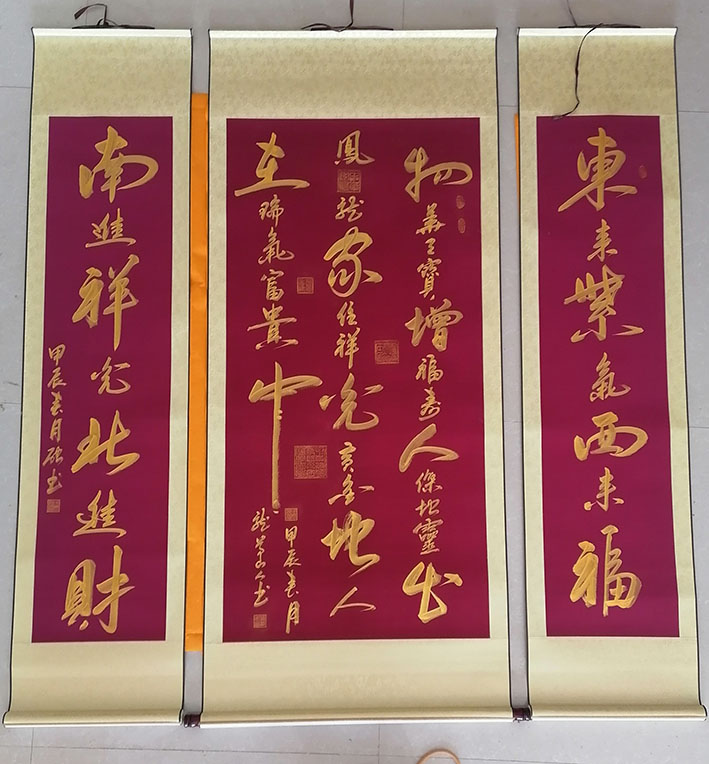 東来紫氣西来福
物華天寶增福壽人傑地靈出
鳳龍家住祥光黃金地人
在瑞氣富貴中
甲辰春月
南進祥光北進財
甲辰春月硕书